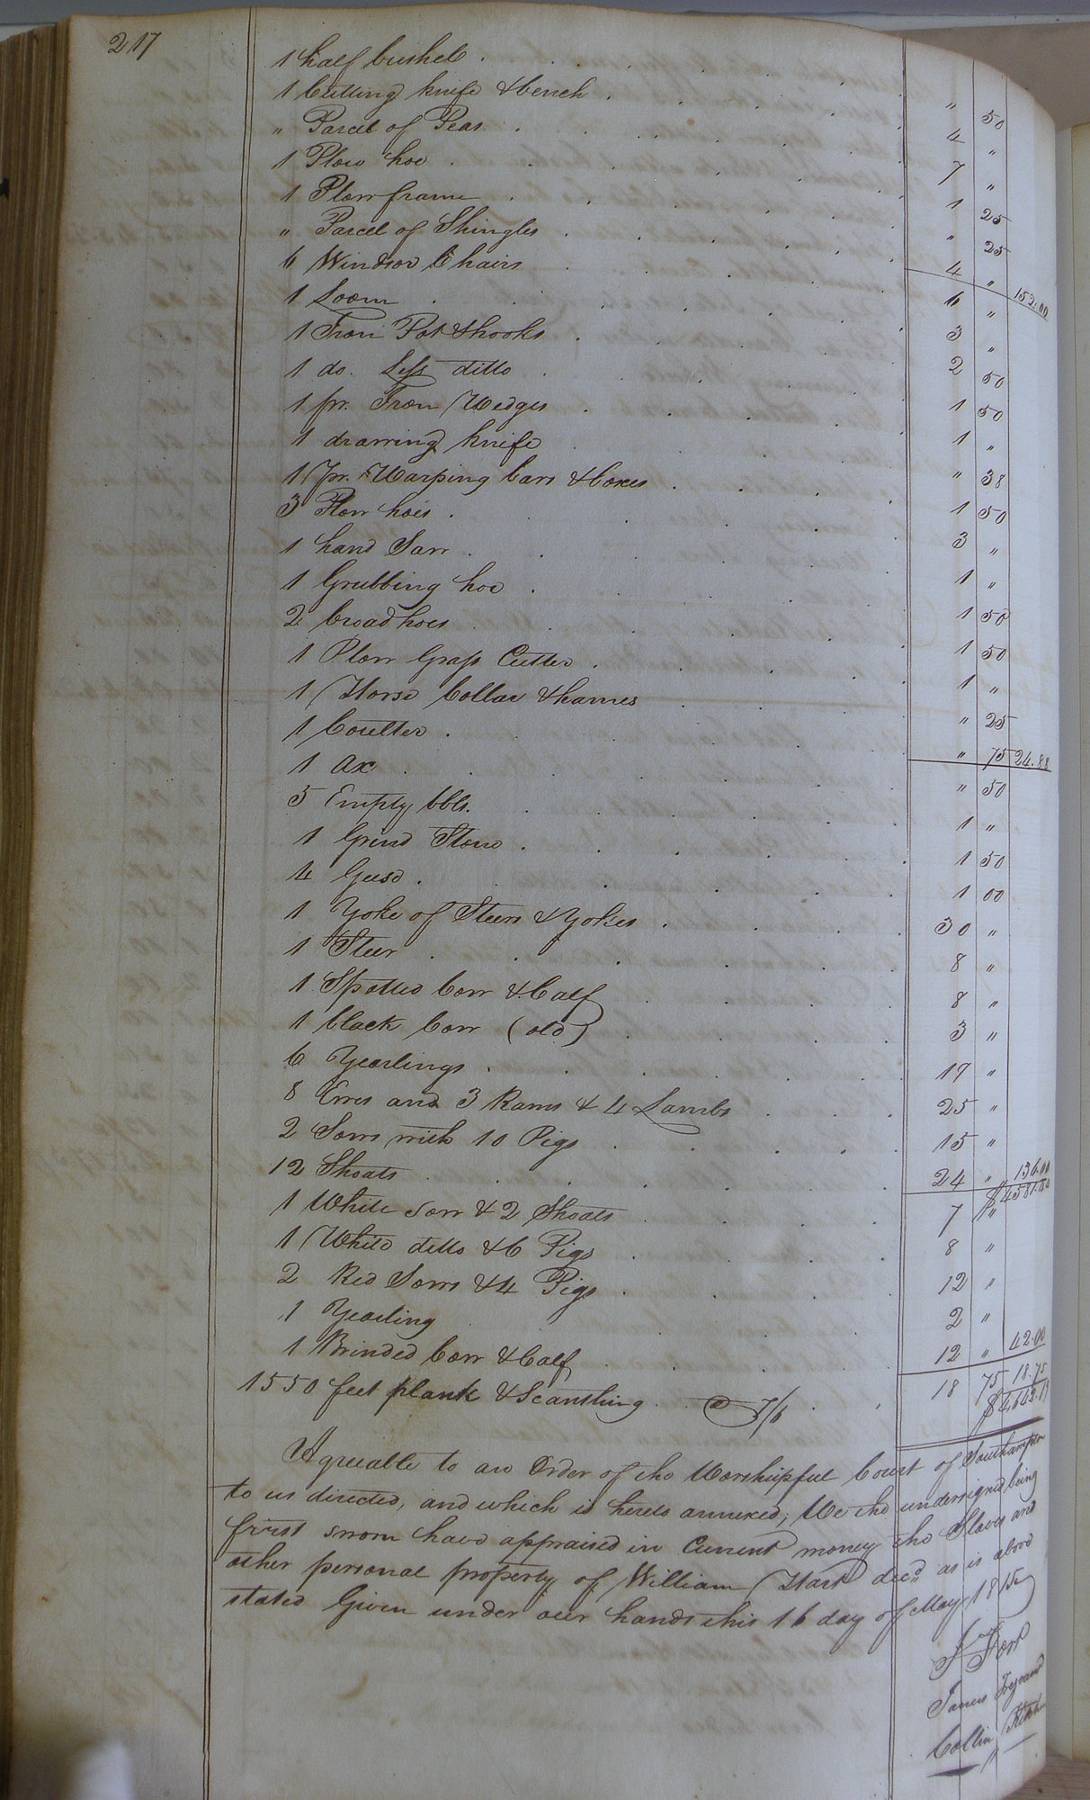 217
1 half bushel . . . " 50
1 Cutting knife & bench . 4 "
" Parcel of Peas . 7 "
1 Plow hoe . 1 25
1 Plow frame . " 25
" Parcel of Shingles . 4 " 152.00
6 Windsor Chairs . 6 "
1 Loom . 3 "
1 Iron Pot & hooks . 2 50
1 do. Less ditto . 1 50
1 pr. Iron Wedges . 1 "
1 drawing knife . " 38
1 pr. Warping bars & boxes . 1 50
3 Plow hoes . 3 "
1 hand Saw . 1 "
1 Grubbing hoe . 1 50
2 broad hoes . 1 50
1 Plow Grass Cutter . 1 "
1 Horse Collar & hames . " 25
1 Coulter . " 75 24.88
1 Ax . " 50
5 Empty bbls. . 1 "
1 Grind Stone . 1 50
4 Geese . 1 00
1 Yoke of Steers & Yokes . 30 "
1 Steer . 8 "
1 Spotted Cow & Calf . 8 "
1 black Cow (old) . 3 "
6 Yearlings . 17 "
8 Ewes and 3 Rams & 4 Lambs . 25 "
2 Sows with 10 Pigs . 15 "
12 Shoats . 24 " 136.00
1 White Sow & 2 Shoats . 7 "
1 White ditto & 6 Pigs . 8 "
2 Red Sows & 4 Pigs . 12 "
1 Yearling . 2 "
1 Brinded Cow & Calf . 12 " 42.00
1550 feet plank & Scantling @ 7/6 . 18 75 18.75
Agreeable to an Order of the Worshipful Court of Southampton
to us directed, and which is hereto annexed, We the undersigned being
first sworn have appraised in Current money the Slaves and
other personal property of William Hart decd. as is above
stated Given under our hands this 16 day of May 1815
James
Collin